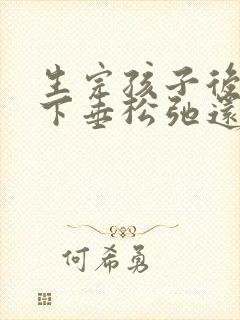 生完孩子後
下垂松弛還
何希勇